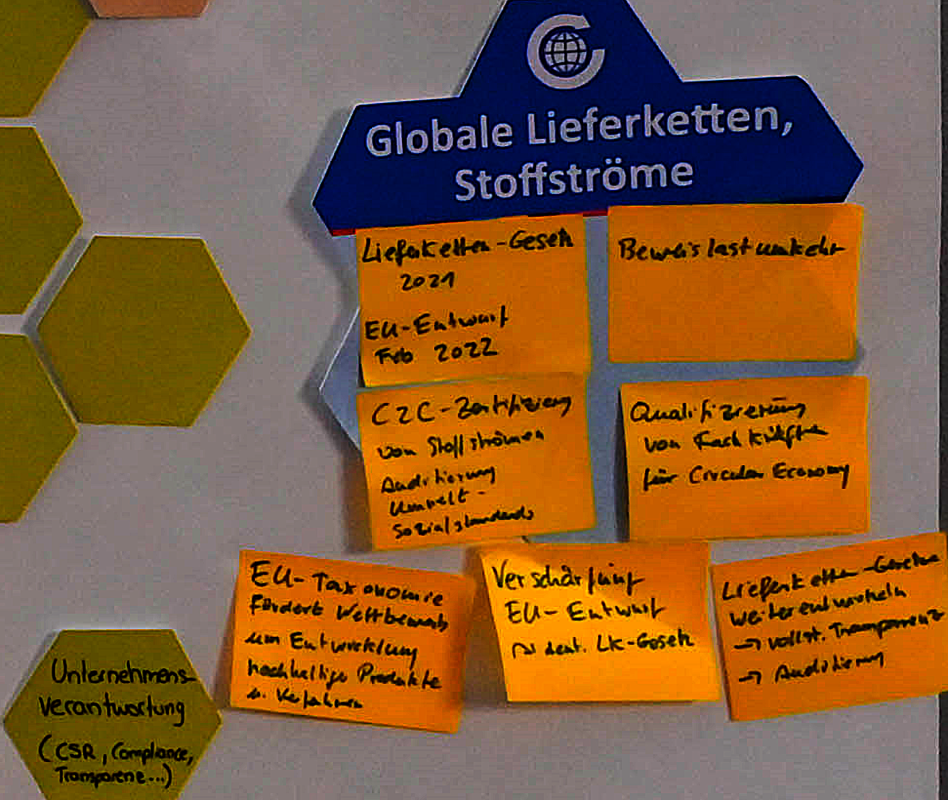 Globale Lieferketten,
Stoffströme
Lieferketten-Gesetz
2021
EU-Entwurf
Feb 2022
Beweislastumkehr
C2C-Zertifizierung
von Stoffströmen
Auditierung
Umwelt-
Sozialstandards
Qualifizierung
von Fachkräften
für Circular Economy
EU-Taxonomie
fördert Wettbewerb
um Entwicklung
nachhaltige Produkte
u. Verfahren
Verschärfung
EU-Entwurf
deut. LK-Gesetz
Lieferketten-Gesetze
weiterentwickeln
→ vollst. Transparenz
→ Auditierung
Unternehmens-
verantwortung
(CSR, Compliance,
Transparenz...)